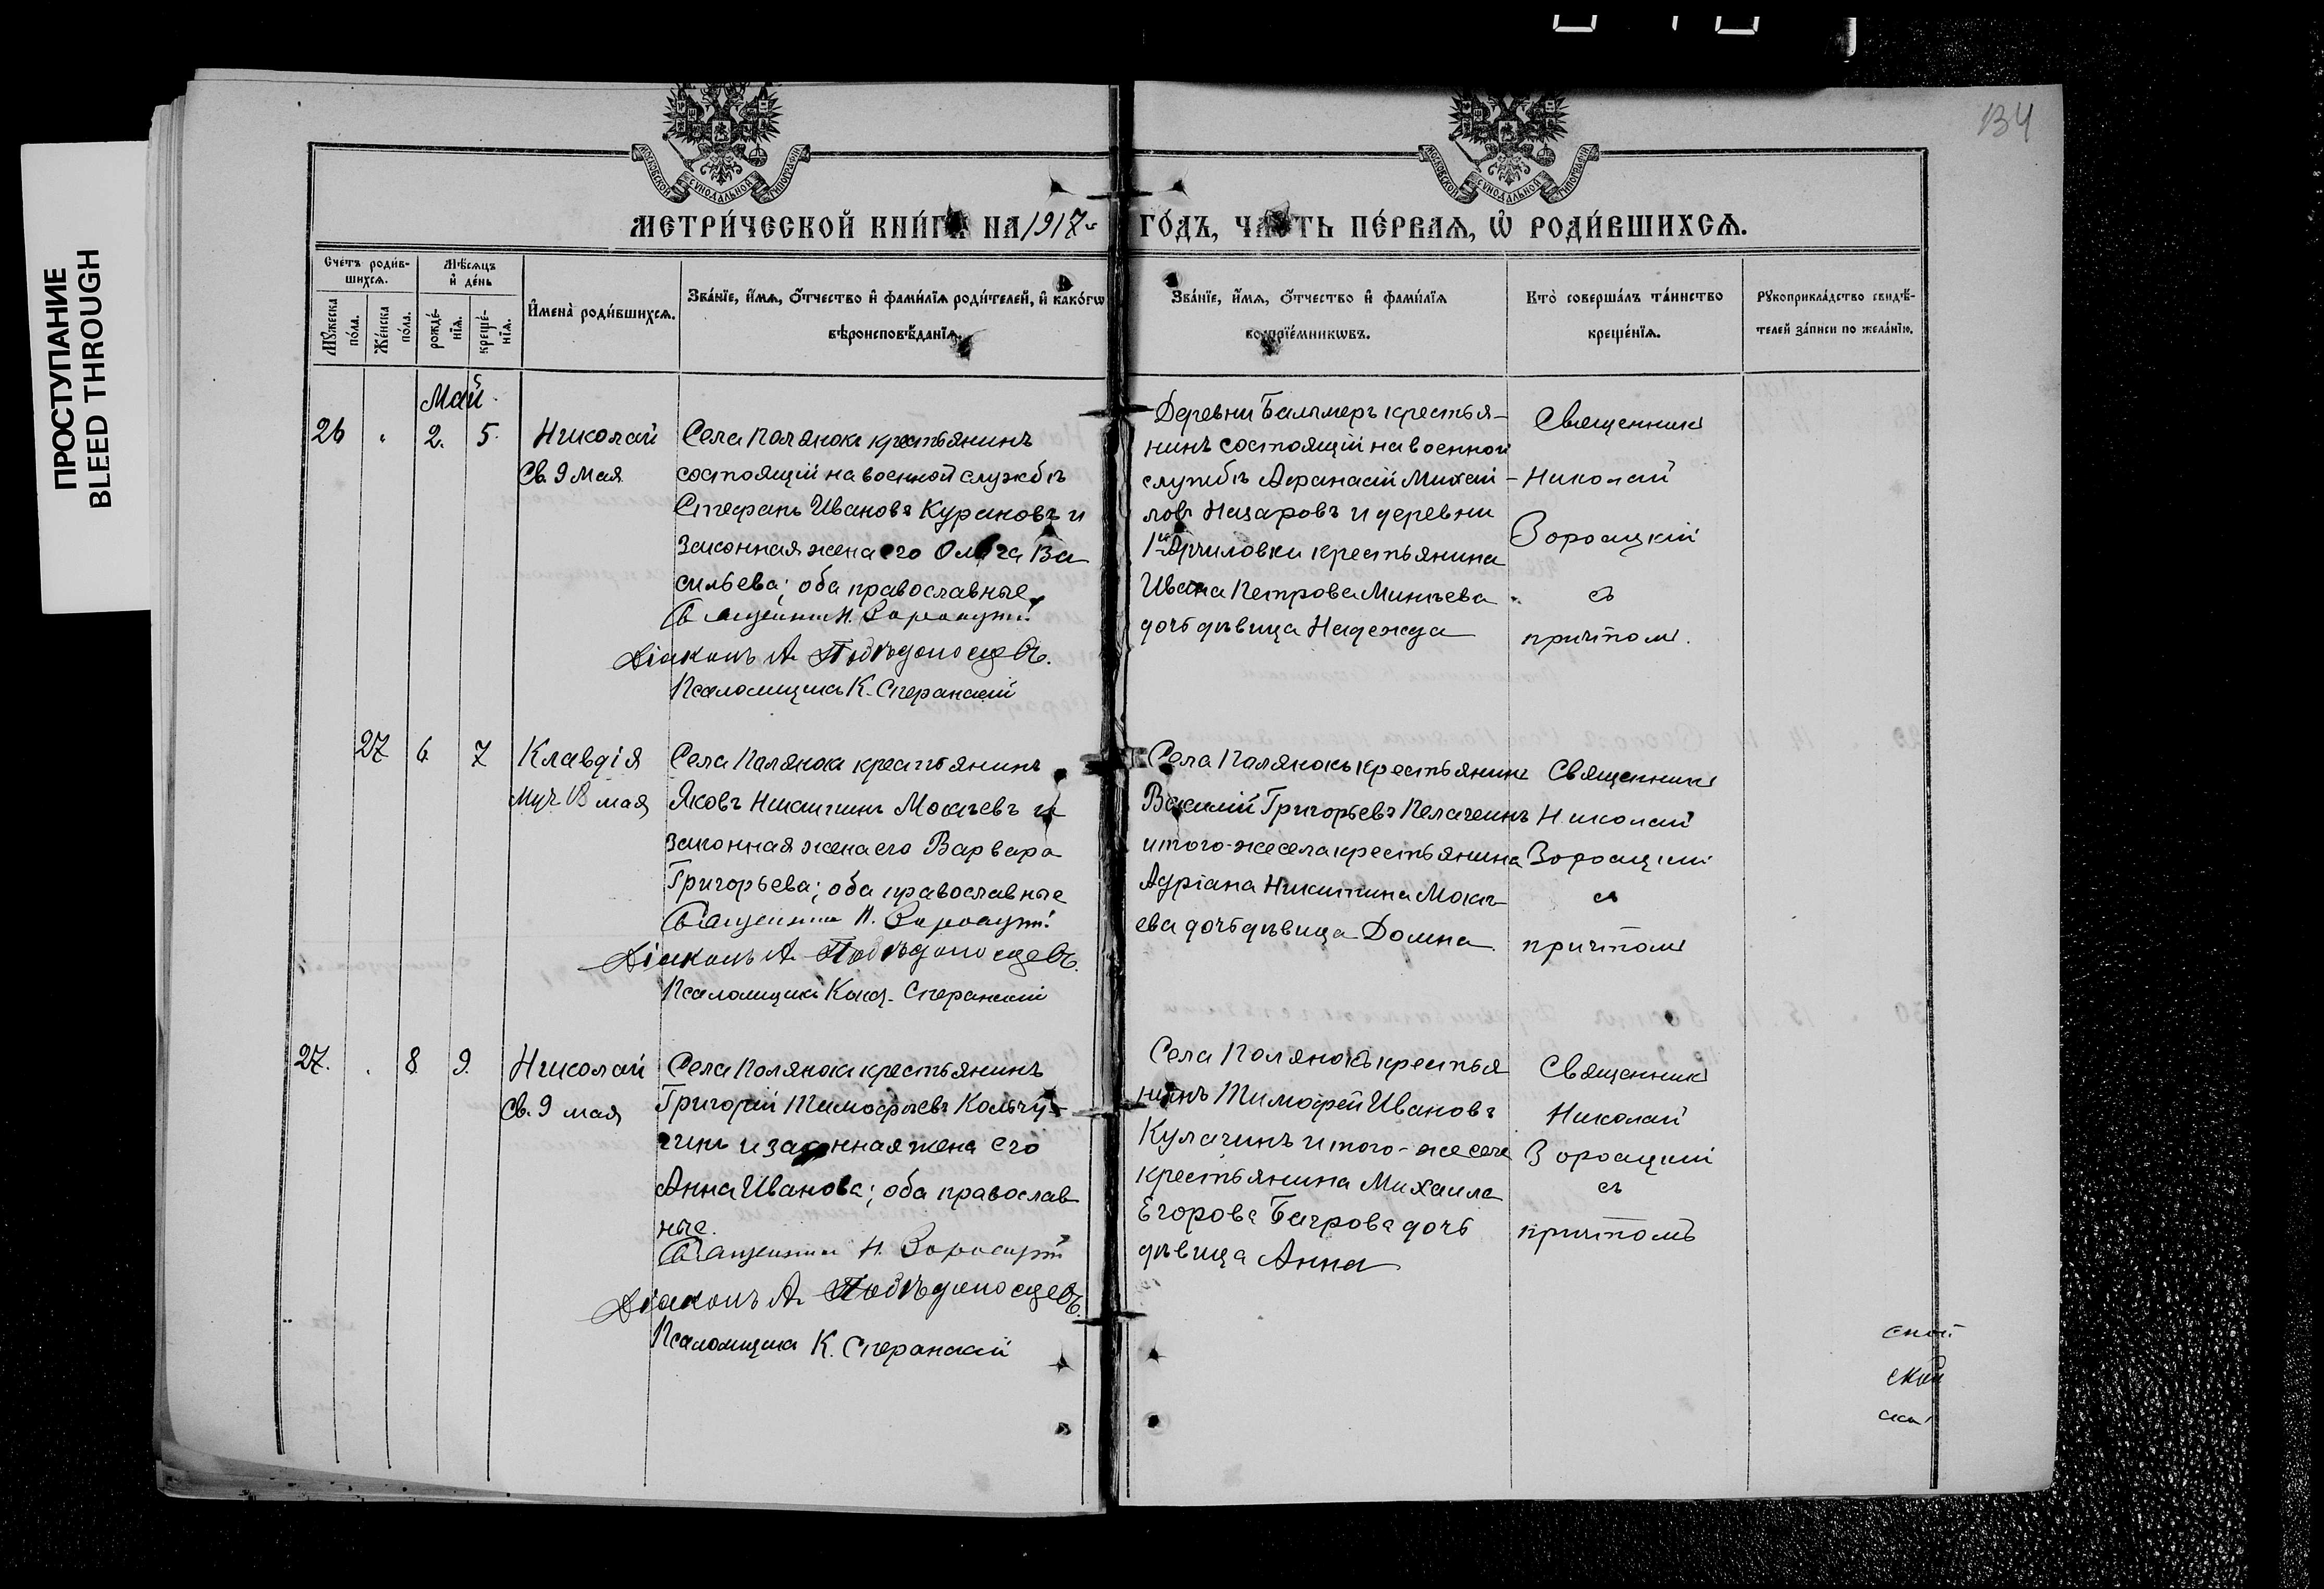 134
ПРОСТУПАНИЕ
BLEED THROUGH
МОСКОВСКОЙ СУНОДАЛЬНОЙ ТИПОГРАФІИ
МОСКОВСКОЙ СУНОДАЛЬНОЙ ТИПОГРАФІИ
МЕТРИ́ЧЕСКОЙ КНИ́ГИ НА 1917 ГО́ДЪ, ЧАСТЬ ПЕ́РВАЯ, Ѡ҆ РОДИ́ВШИХСѦ.
Сче́тъ роди́в-
шихсѧ.
Мꙋ́жеска по́ла.
Же́нска по́ла.
Мѣ́сѧцъ
и҆ де́нь
рожде́-нїѧ.
креще́-нїѧ.
И҆мена̀ роди́вшихсѧ.
Зва́нїе, и҆́мѧ, ѻ҆́тчество и҆ фами́лїѧ роди́телей, и҆ како́гѡ
вѣроисповѣ́данїѧ.
Зва́нїе, и҆́мѧ, ѻ҆́тчество и҆ фами́лїѧ
воспрїе́мникѡвъ.
Кто̀ соверша́лъ та́инство
креще́нїѧ.
Рꙋкоприкла́дство свидѣ́-
телей за́писи по жела́нїю.
Май
26 " 2. 5.
Николай
Св. 9 мая
Села Полянок крестьянинъ
состоящій на военной службѣ
Стефанъ Ивановъ Курановъ и
законная жена его Ольга Ва
сильева; оба православные
Священникъ Н.
Діаконъ А. Победоносцевъ.
Псаломщикъ К. Сперанскій
Деревни Балымеръ крестья-
нинъ состоящій на военной
службѣ Афанасій Михай-
ловъ Назаровъ и деревни
крестьянина
Ивана Петрова
дочь дѣвица Надежда
Священникъ
Николай
съ
причтомъ.
27 6 7
Клавдія
муч 18 мая
Села Полянок крестьянинъ
Яковъ Никитинъ Мокѣевъ и
законная жена его Варвара
Григорьева; оба православные
Священникъ Н.
Діаконъ А. Победоносцевъ.
Псаломщикъ Конст. Сперанскій
Села Полянокъ крестьянинъ
Василій Григорьевъ Пелагеинъ
и того-же села крестьянина
Адріана Никитина Мокѣ-
ева дочь дѣвица Домна
Священникъ
Николай
съ
причтомъ
27. . 8 9.
Николай
Св. 9 мая
Села Полянок крестьянинъ
Григорій Тимофѣевъ Кольчу-
гинъ и законная жена его
Анна Иванова; оба православ
ные.
Священникъ Н.
Діаконъ А. Победоносцевъ.
Псаломщикъ К. Сперанскій
Села Полянокъ крестья
нинъ Тимофей Ивановъ
Кулагинъ и того-же села
крестьянина Михаила
Егорова Багрова дочь
дѣвица Анна
Священникъ
Николай
съ
причтомъ
ской
ской